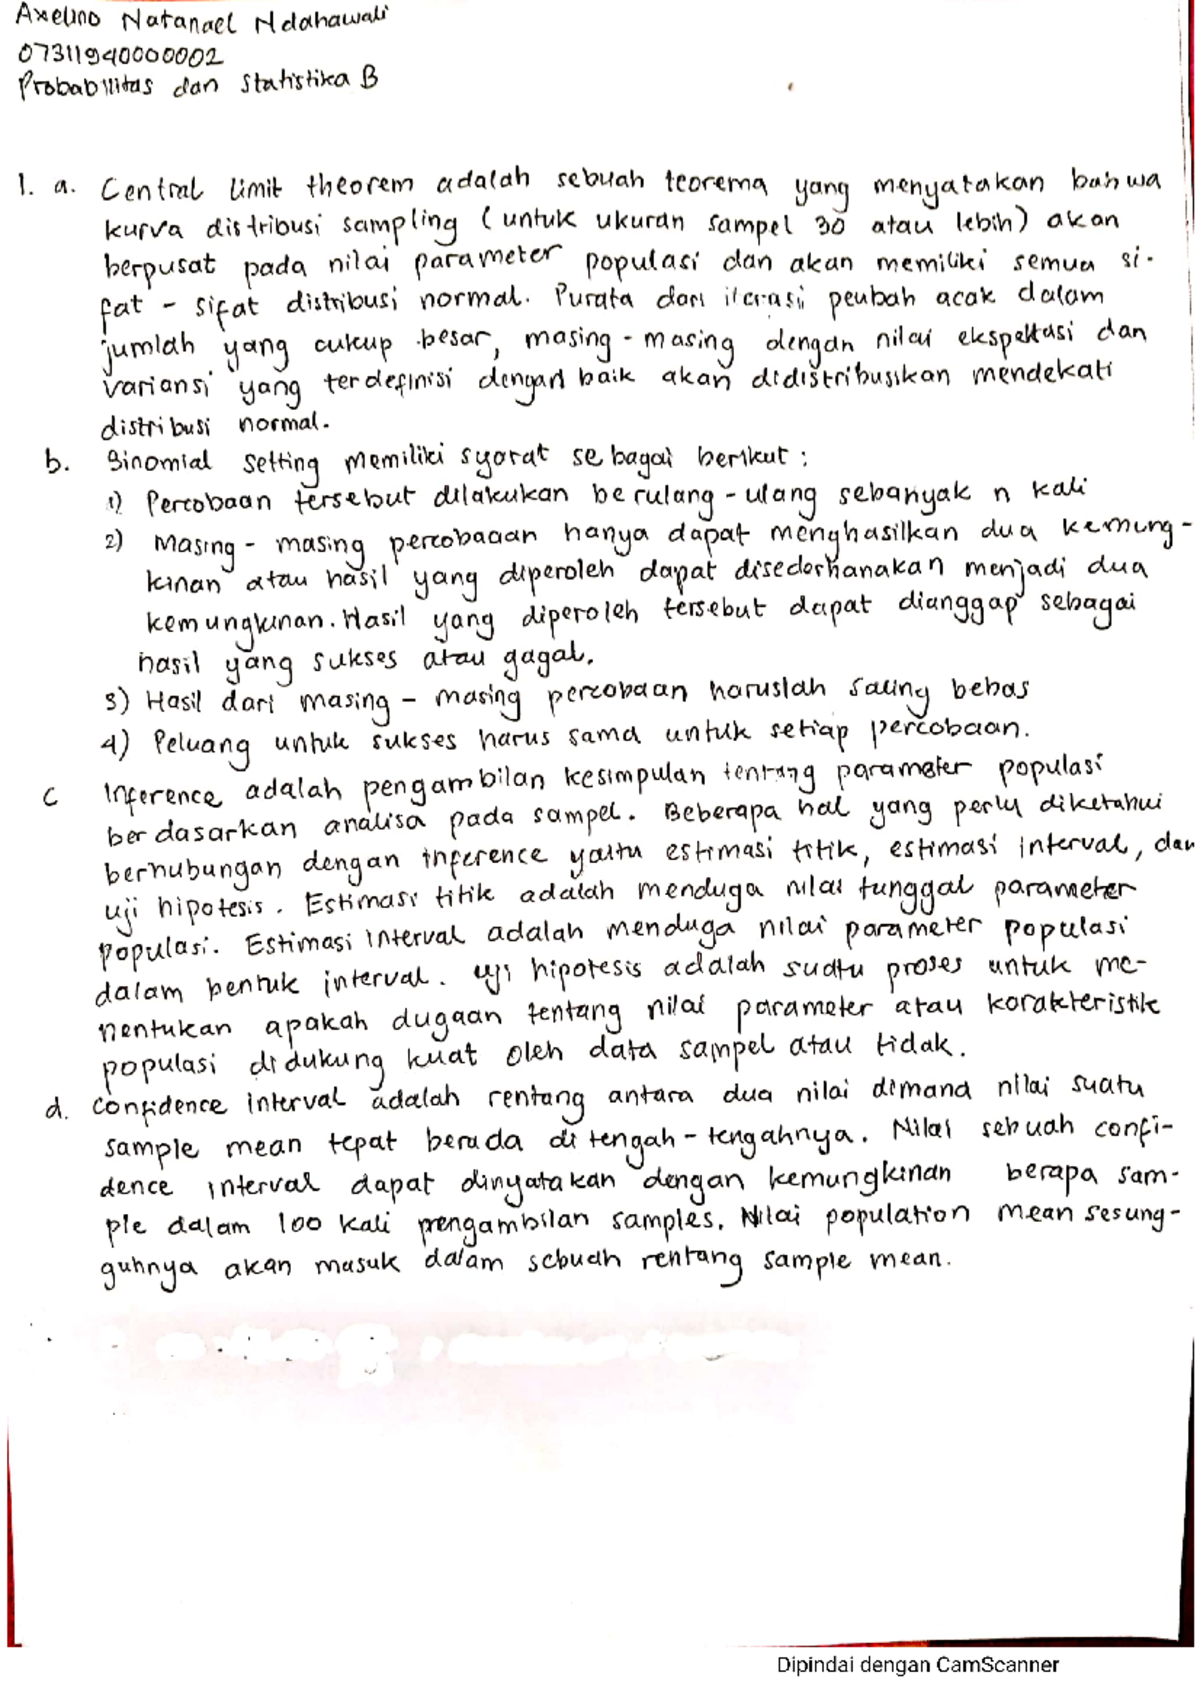 Axelino Natanael Ndahawali
07311940000002
Probabilitas dan Statistika B
1. a. Central limit theorem adalah sebuah teorema yang menyatakan bahwa
kurva distribusi sampling (untuk ukuran sampel 30 atau lebih) akan
berpusat pada nilai parameter populasi dan akan memiliki semua si-
fat - sifat distribusi normal. Purata dari iterasi peubah acak dalam
jumlah yang cukup besar, masing - masing dengan nilai ekspektasi dan
variansi yang terdefinisi dengan baik akan didistribusikan mendekati
distribusi normal.
b. Binomial setting memiliki syarat sebagai berikut :
1) Percobaan tersebut dilakukan berulang - ulang sebanyak n kali
2) Masing - masing percobaaan hanya dapat menghasilkan dua kemung-
kinan atau hasil yang diperoleh dapat disederhanakan menjadi dua
kemungkinan. Hasil yang diperoleh tersebut dapat dianggap sebagai
hasil yang sukses atau gagal.
3) Hasil dari masing - masing percobaan haruslah saling bebas
4) Peluang untuk sukses harus sama untuk setiap percobaan.
c Inference adalah pengambilan kesimpulan tentang parameter populasi
berdasarkan analisa pada sampel. Beberapa hal yang perlu diketahui
berhubungan dengan inference yaitu estimasi titik, estimasi interval, dan
uji hipotesis. Estimasi titik adalah menduga nilai tunggal parameter
populasi. Estimasi interval adalah menduga nilai parameter populasi
dalam bentuk interval. Uji hipotesis adalah suatu proses untuk me-
nentukan apakah dugaan tentang nilai parameter atau karakteristik
populasi didukung kuat oleh data sampel atau tidak.
d. Confidence interval adalah rentang antara dua nilai dimana nilai suatu
sample mean tepat berada di tengah - tengahnya. Nilai sebuah confi-
dence interval dapat dinyatakan dengan kemungkinan berapa sam-
ple dalam 100 kali pengambilan samples. Nilai population mean sesung-
guhnya akan masuk dalam sebuah rentang sample mean.
Dipindai dengan CamScanner